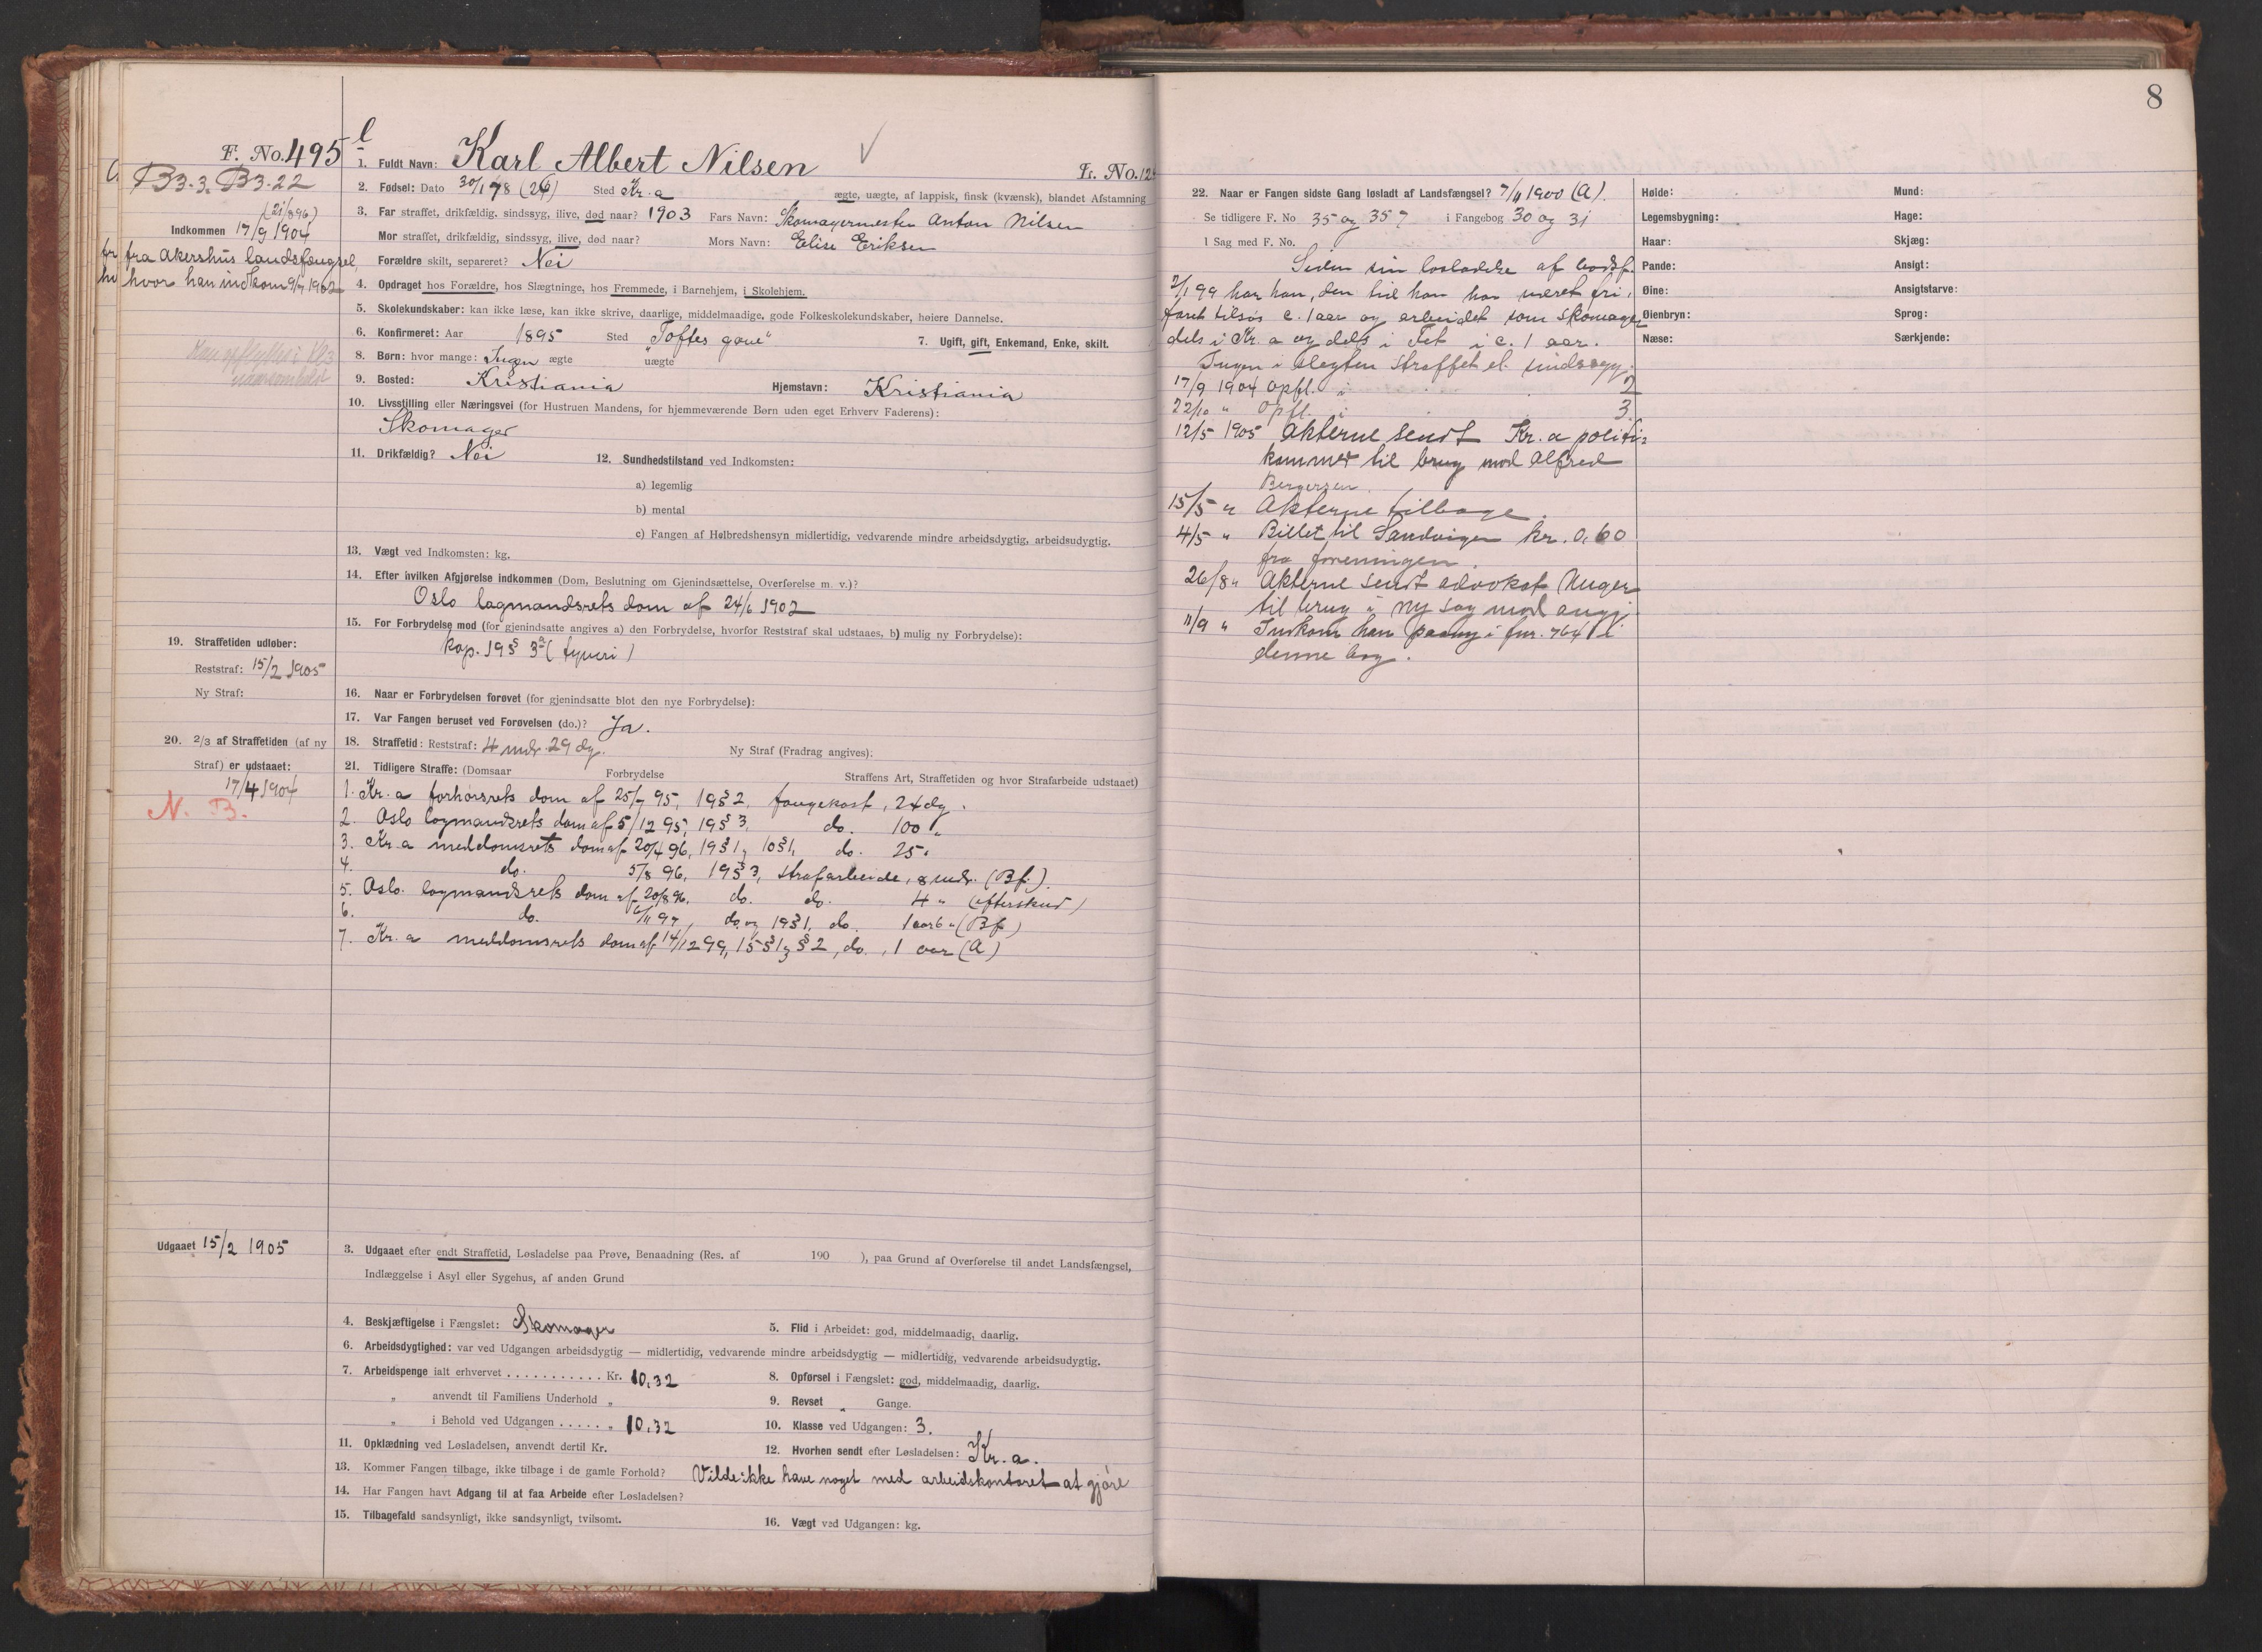 F. No. 495 l
B3.3. B3.22
(21/896)
Indkommen 17/9 1904
fra Akershus landsfængsel,
hvor han indkom 9/7 1902
1. Fuldt Navn: Karl Albert Nilsen
Fr. No. 12
2. Fødsel: Dato 30/1 78 (26) Sted Kr.a ægte, uægte, af lappisk, finsk (kvænsk), blandet Afstamning
3. Far straffet, drikfældig, sindssyg, ilive, død naar? 1903 Fars Navn: Skomagermester Anton Nilsen
Mor straffet, drikfældig, sindssyg, ilive, død naar? Mors Navn: Elise Eriksen
Forældre skilt, separeret? Nei
4. Opdraget hos Forældre, hos Slægtninge, hos Fremmede, i Barnehjem, i Skolehjem.
5. Skolekundskaber: kan ikke læse, kan ikke skrive, daarlige, middelmaadige, gode Folkeskolekundskaber, høiere Dannelse.
6. Konfirmeret: Aar 1895 Sted „Toftes gave“ 7. Ugift, gift, Enkemand, Enke, skilt.
8. Børn: hvor mange: Ingen ægte uægte
9. Bosted: Kristiania Hjemstavn: Kristiania
10. Livsstilling eller Næringsvei (for Hustruen Mandens, for hjemmeværende Børn uden eget Erhverv Faderens):
Skomager
11. Drikfældig? Nei 12. Sundhedstilstand ved Indkomsten:
a) legemlig
b) mental
c) Fangen af Helbredshensyn midlertidig, vedvarende mindre arbeidsdygtig, arbeidsudygtig.
13. Vægt ved Indkomsten: kg.
14. Efter hvilken Afgjørelse indkommen (Dom, Beslutning om Gjenindsættelse, Overførelse m. v.)?
Oslo lagmandsrets dom af 24/6 1902
15. For Forbrydelse mod (for gjenindsatte angives a) den Forbrydelse, hvorfor Reststraf skal udstaaes, b) mulig ny Forbrydelse):
kap. 19 § 3a (tyveri)
19. Straffetiden udløber:
Reststraf: 15/2 1905
Ny Straf:
16. Naar er Forbrydelsen forøvet (for gjenindsatte blot den nye Forbrydelse):
17. Var Fangen beruset ved Forøvelsen (do.)? Ja.
20. 2/3 af Straffetiden (af ny
Straf) er udstaaet:
17/4 1904
N. B.
18. Straffetid: Reststraf: 4 mdr. 29 dg. Ny Straf (Fradrag angives):
21. Tidligere Straffe: (Domsaar Forbrydelse Straffens Art, Straffetiden og hvor Strafarbeide udstaaet)
1. Kr.a forhørsrets dom af 25/7 95, 19 § 2, fangekost, 24 dg.
2. Oslo lagmandsrets dom af 5/12 95, 19 § 3, do. 100 „
3. Kr.a meddomsrets dom af 20/4 96, 19 § 1, 10 § 1, do. 25 „
4. do. 5/8 96, 19 § 3, strafarbeide, 8 mdr. (Bf.).
5. Oslo lagmandsrets dom af 20/8 96, do. do. 4 „ (efterskud)
6. do. 6/11 97, do. og 19 § 1, do. 1 aar 6 „ (Bf)
7. Kr.a meddomsrets dom af 14/12 99, 15 § 1, § 2, do., 1 aar (A)
Udgaaet 15/2 1905
3. Udgaaet efter endt Straffetid, Løsladelse paa Prøve, Benaadning (Res. af 190 ), paa Grund af Overførelse til andet Landsfængsel,
Indlæggelse i Asyl eller Sygehus, af anden Grund
4. Beskjæftigelse i Fængslet: Skomager 5. Flid i Arbeidet: god, middelmaadig, daarlig.
6. Arbeidsdygtighed: var ved Udgangen arbeidsdygtig — midlertidig, vedvarende mindre arbeidsdygtig — midlertidig, vedvarende arbeidsudygtig.
7. Arbeidspenge ialt erhvervet . . . . . . . . . . . Kr. 10,32 8. Opførsel i Fængslet: god, middelmaadig, daarlig.
„ anvendt til Familiens Underhold „ 9. Revset „ Gange.
„ i Behold ved Udgangen . . . . . „ 10.32 10. Klasse ved Udgangen: 3.
11. Opklædning ved Løsladelsen, anvendt dertil Kr. 12. Hvorhen sendt efter Løsladelsen: Kr.a.
13. Kommer Fangen tilbage, ikke tilbage i de gamle Forhold? Vilde ikke have noget med arbeidskontoret at gjøre
14. Har Fangen havt Adgang til at faa Arbeide efter Løsladelsen?
15. Tilbagefald sandsynligt, ikke sandsynligt, tvilsomt. 16. Vægt ved Udgangen: kg.
8
22. Naar er Fangen sidste Gang løsladt af Landsfængsel? 7/11 1900 (A).
Se tidligere F. No 35 og 357 i Fangebog 30 og 31
I Sag med F. No.
Siden sin løsladelse af bodsf.
2/1 99 har han, den tid han har været fri,
faret tilsjøs c. 1 aar og arbeidet som skomager
dels i Kr.a og dels i Fet i c. 1 aar.
Ingen i slegten straffet el. sindssyg.
17/9 1904 Opfl. i 2
22/10 „ Opfl. i 3.
12/5 1905 Akterne sendt Kr.a politi-
kammer til brug mod Alfred
Bergersen.
15/5 „ Akterne tilbage.
4/5 „ Billet til Sandvigen kr. 0,60
fra foreningen.
26/8 „ Akterne sendt advokat Unger
til brug i ny sag mod angj.
11/9 „ Indkom han paany i fnr. 764 l
denne bog.
Høide: Mund:
Legemsbygning: Hage:
Haar: Skjæg:
Pande: Ansigt:
Øine: Ansigtstarve:
Øienbryn: Sprog:
Næse: Særkjende: